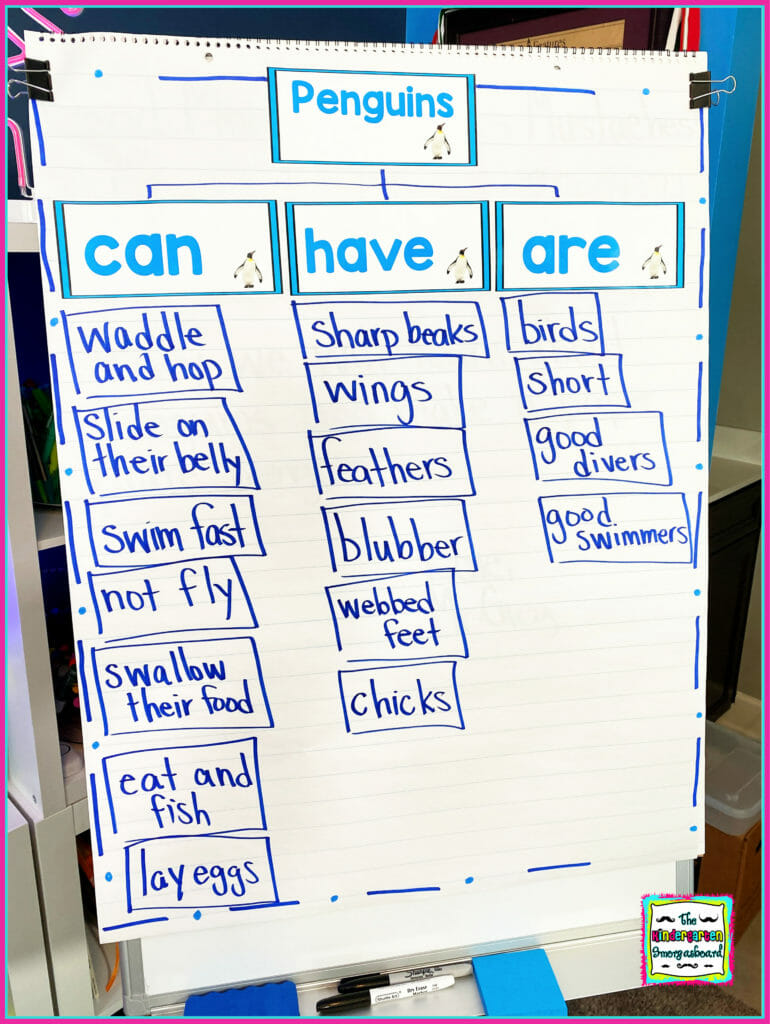 Penguins
can
have
are
waddle
and hop
slide on
their belly
swim fast
not fly
swallow
their food
eat and
fish
lay eggs
sharp beaks
wings
feathers
blubber
webbed
feet
chicks
birds
short
good
divers
good
swimmers
The
Kindergarten
Smorgasboard